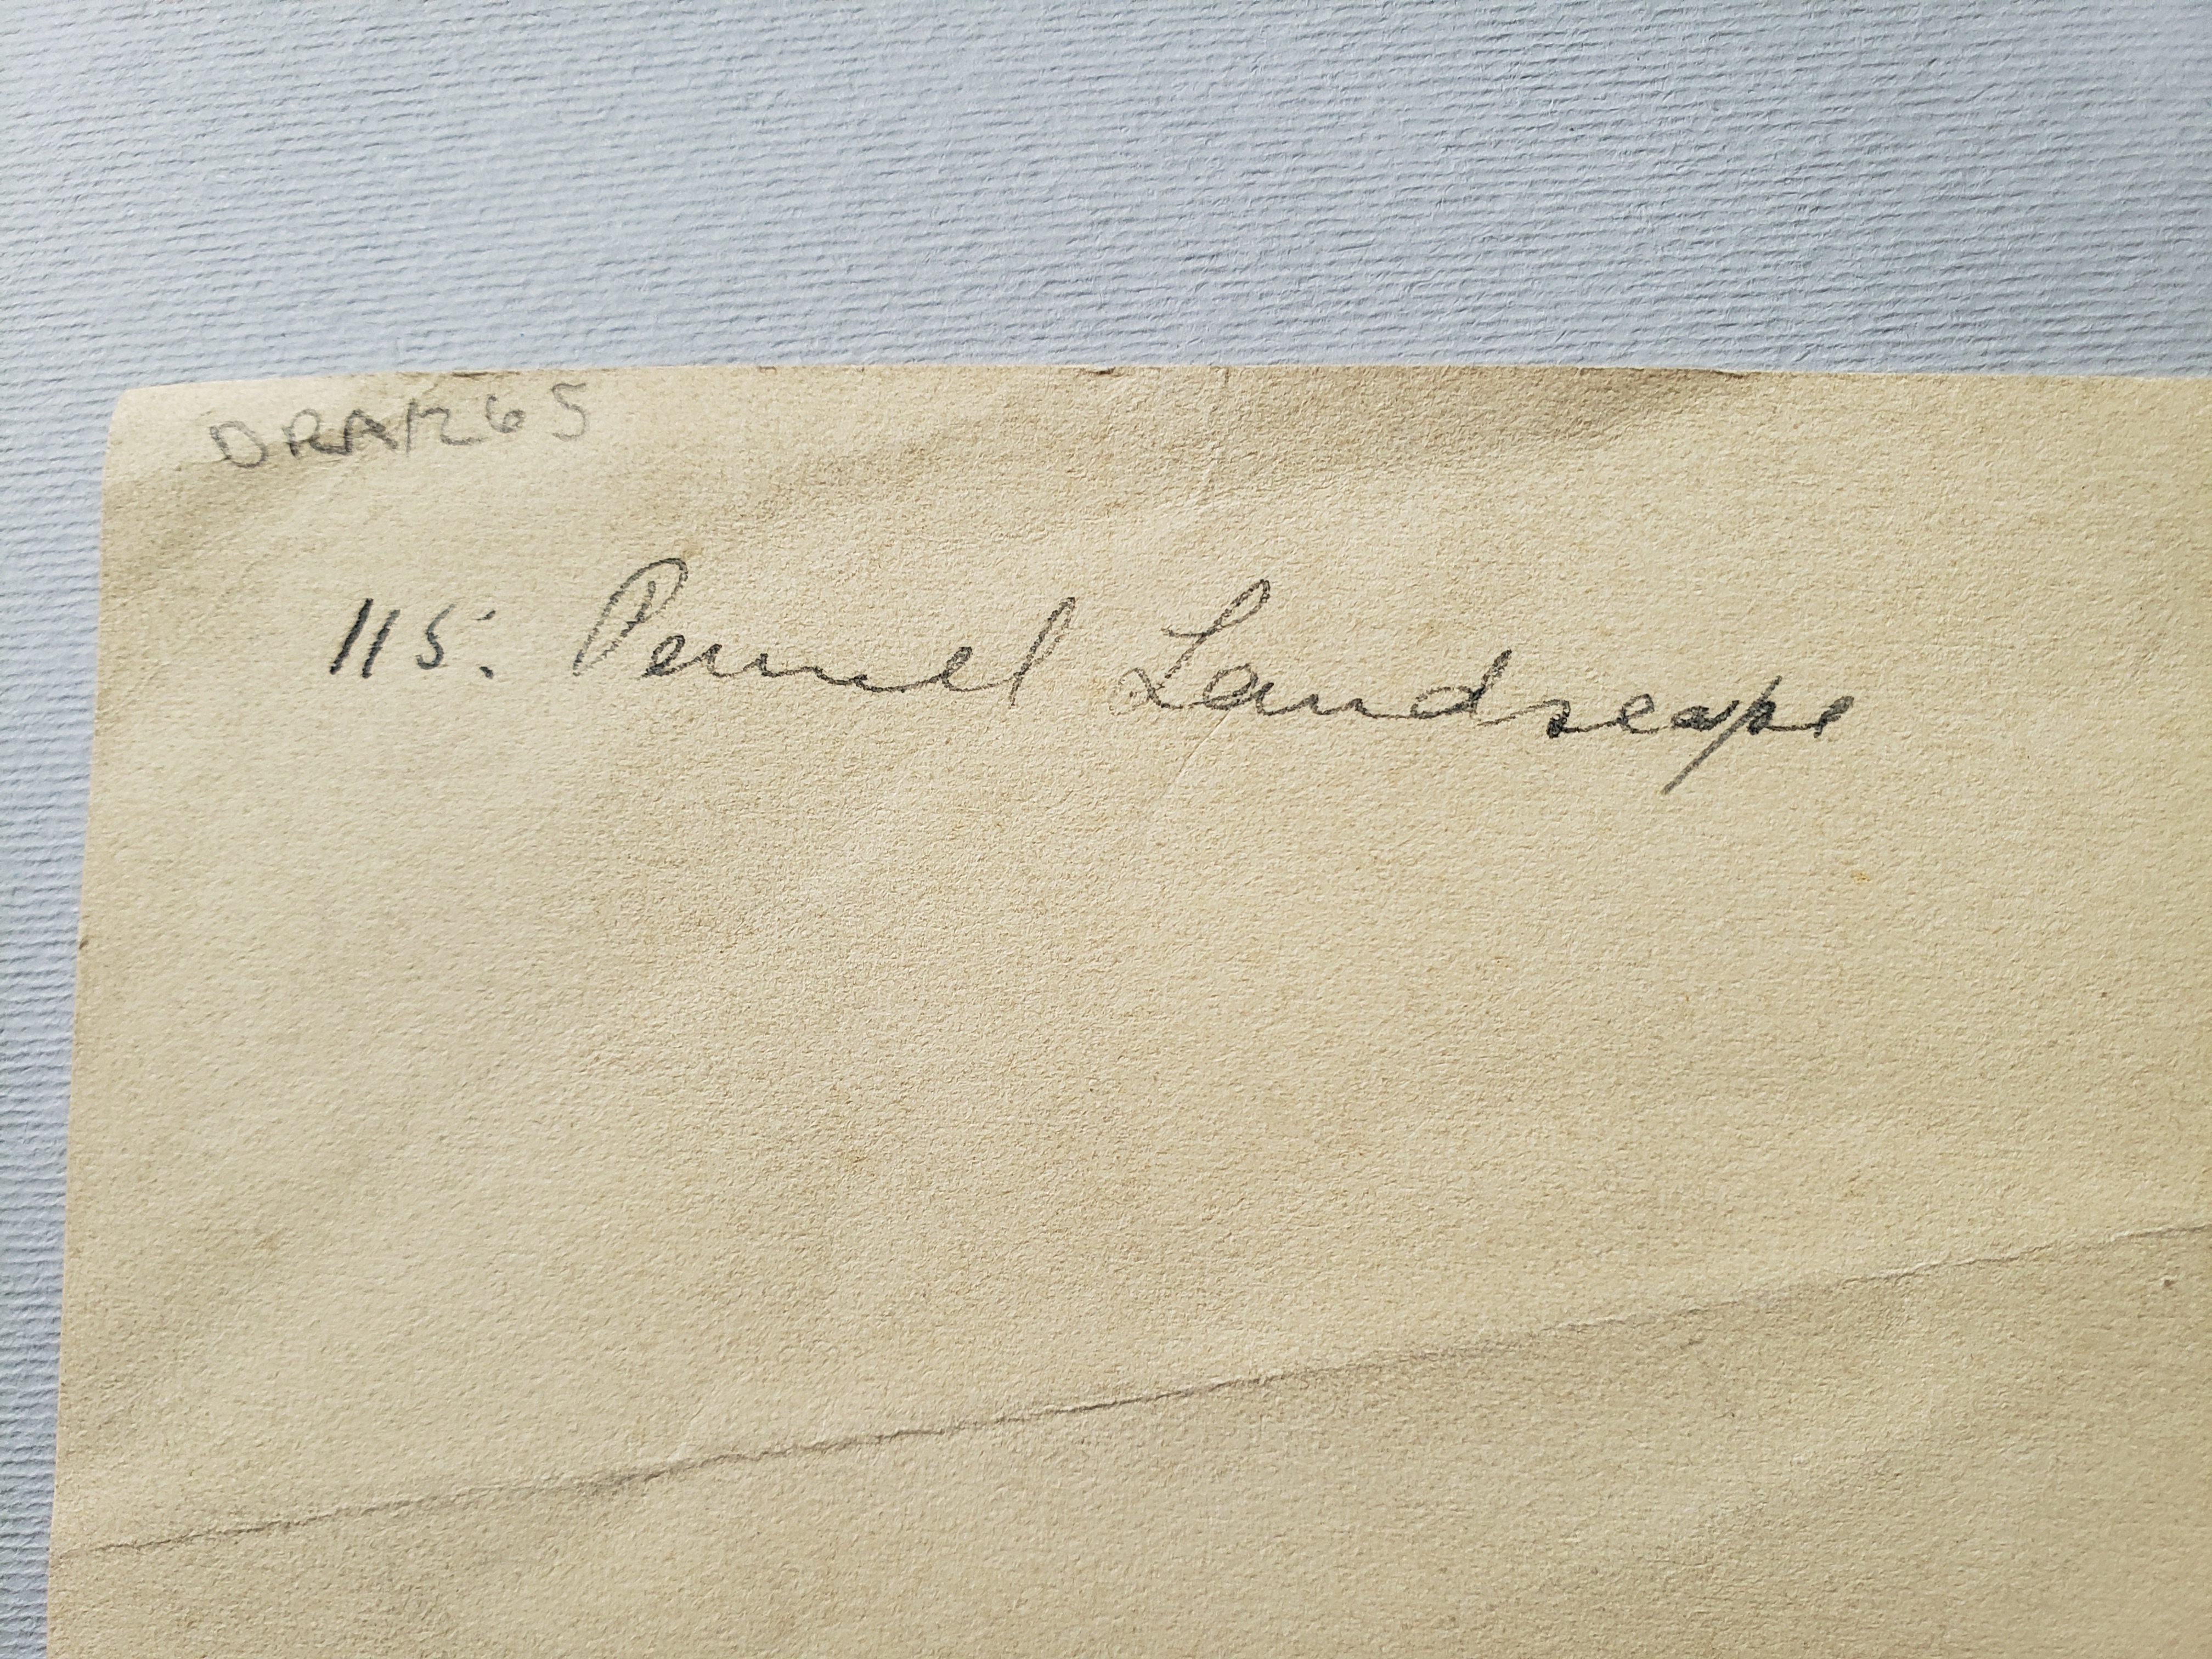 DRA1265
115: Pennel Landscape